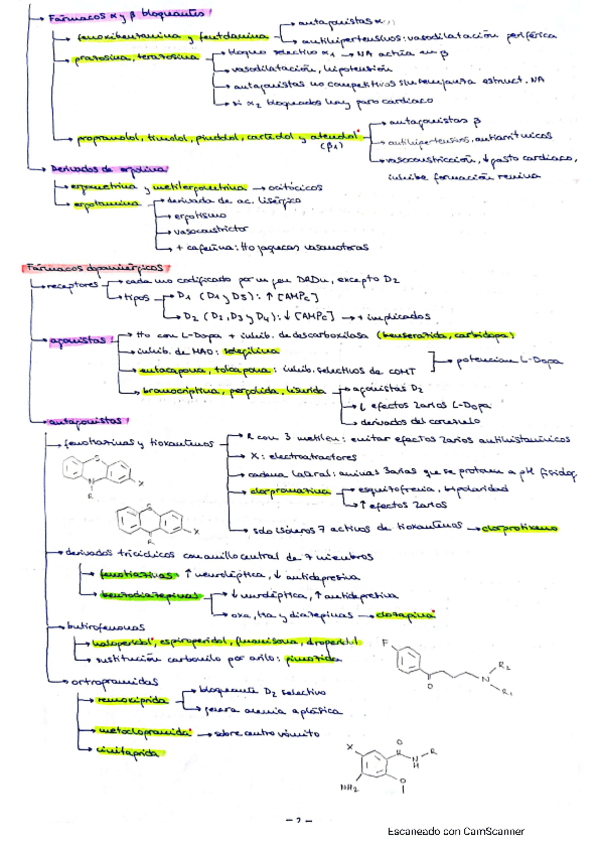 Fármacos α y β bloqueantes
fenoxibenzamina y fentolamina
antagonistas α
antihipertensivos: vasodilatación periférica
prazosina, terazosina
bloqueo selectivo α1 → NA actúa en β
vasodilatación, hipotensión
antagonistas no competitivos sin semejanza estruct. NA
si α2 bloqueados hay paro cardiaco
propranolol, timolol, pindolol, carteolol y atenolol
(β1)
antagonistas β
antihipertensivos, antiarrítmicos
vasoconstricción, ↓ gasto cardiaco,
inhibe formación renina
Derivados de ergolina
ergometrina y metilergometrina → oxitócicos
ergotamina
derivada de ac. lisérgico
ergotismo
vasoconstrictor
+ cafeína: tto jaquecas vasomotoras
Fármacos dopaminérgicos
receptores
cada uno codificado por un gen DRDn, excepto D2
tipos
D1 (D1 y D5): ↑ [AMPc]
D2 (D2, D3 y D4): ↓ [AMPc] → + implicados
agonistas
tto con L-Dopa + inhib. de descarboxilasa (benserazida, carbidopa)
inhib. de MAO: selegilina
entacapona, tolcapona: inhib. selectivos de COMT
potencian L-Dopa
bromocriptina, pergolida, lisurida
agonistas D2
↓ efectos 2arios L-Dopa
derivados del cornezuelo
antagonistas
fenotiazinas y tioxantenos
R con 3 metilen: evitar efectos 2arios antihistamínicos
X: electroatractores
cadena lateral: aminas 3arias que se protonan a pH fisiológ.
clorpromazina
esquizofrenia, bipolaridad
↑ efectos 2arios
solo isómeros Z activos de tioxantenos → clorprotixeno
S
N
R
X
S
R
X
derivados tricíclicos con anillo central de 7 miembros
fenotiazinas ↑ neuroléptica, ↓ antidepresiva
benzodiazepinas
↓ neuroléptica, ↑ antidepresiva
oxa, tia y diazepinas → clozapina
butirofenonas
haloperidol, espiroperidol, fluanisona, droperidol
sustitución carbonilo por arilo: pimozida
F
O
N
R2
R1
ortopramidas
remoxiprida
bloqueante D2 selectivo
genera anemia aplásica
metoclopramida → sobre centro vómito
cinitaprida
X
O
N
H
R
NH2
O
- 2 -
Escaneado con CamScanner